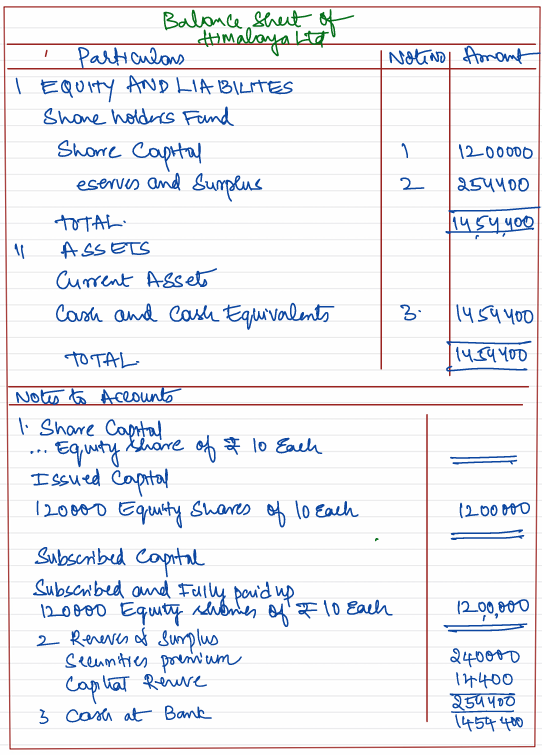 Balance Sheet of
Himalaya Ltd
Particulars Note No Amount
I EQUITY AND LIABILITES
Share holders Fund
Share Capital 1 1200000
eserves and Surplus 2 254400
TOTAL. 14,54,400
II ASSETS
Current Assets
Cash and Cash Equivalents 3. 1454400
TOTAL 1454400
Notes to Accounts
1. Share Capital
... Equity share of ₹ 10 Each
Issued Capital
120000 Equity Shares of 10 Each 1200000
Subscribed Capital
Subscribed and Fully paid up
120000 Equity shares of ₹ 10 Each 12,00,000
2 Reserves & Surplus
Securities premium 240000
Capital Reserve 14400
254400
3 Cash at Bank 1454400